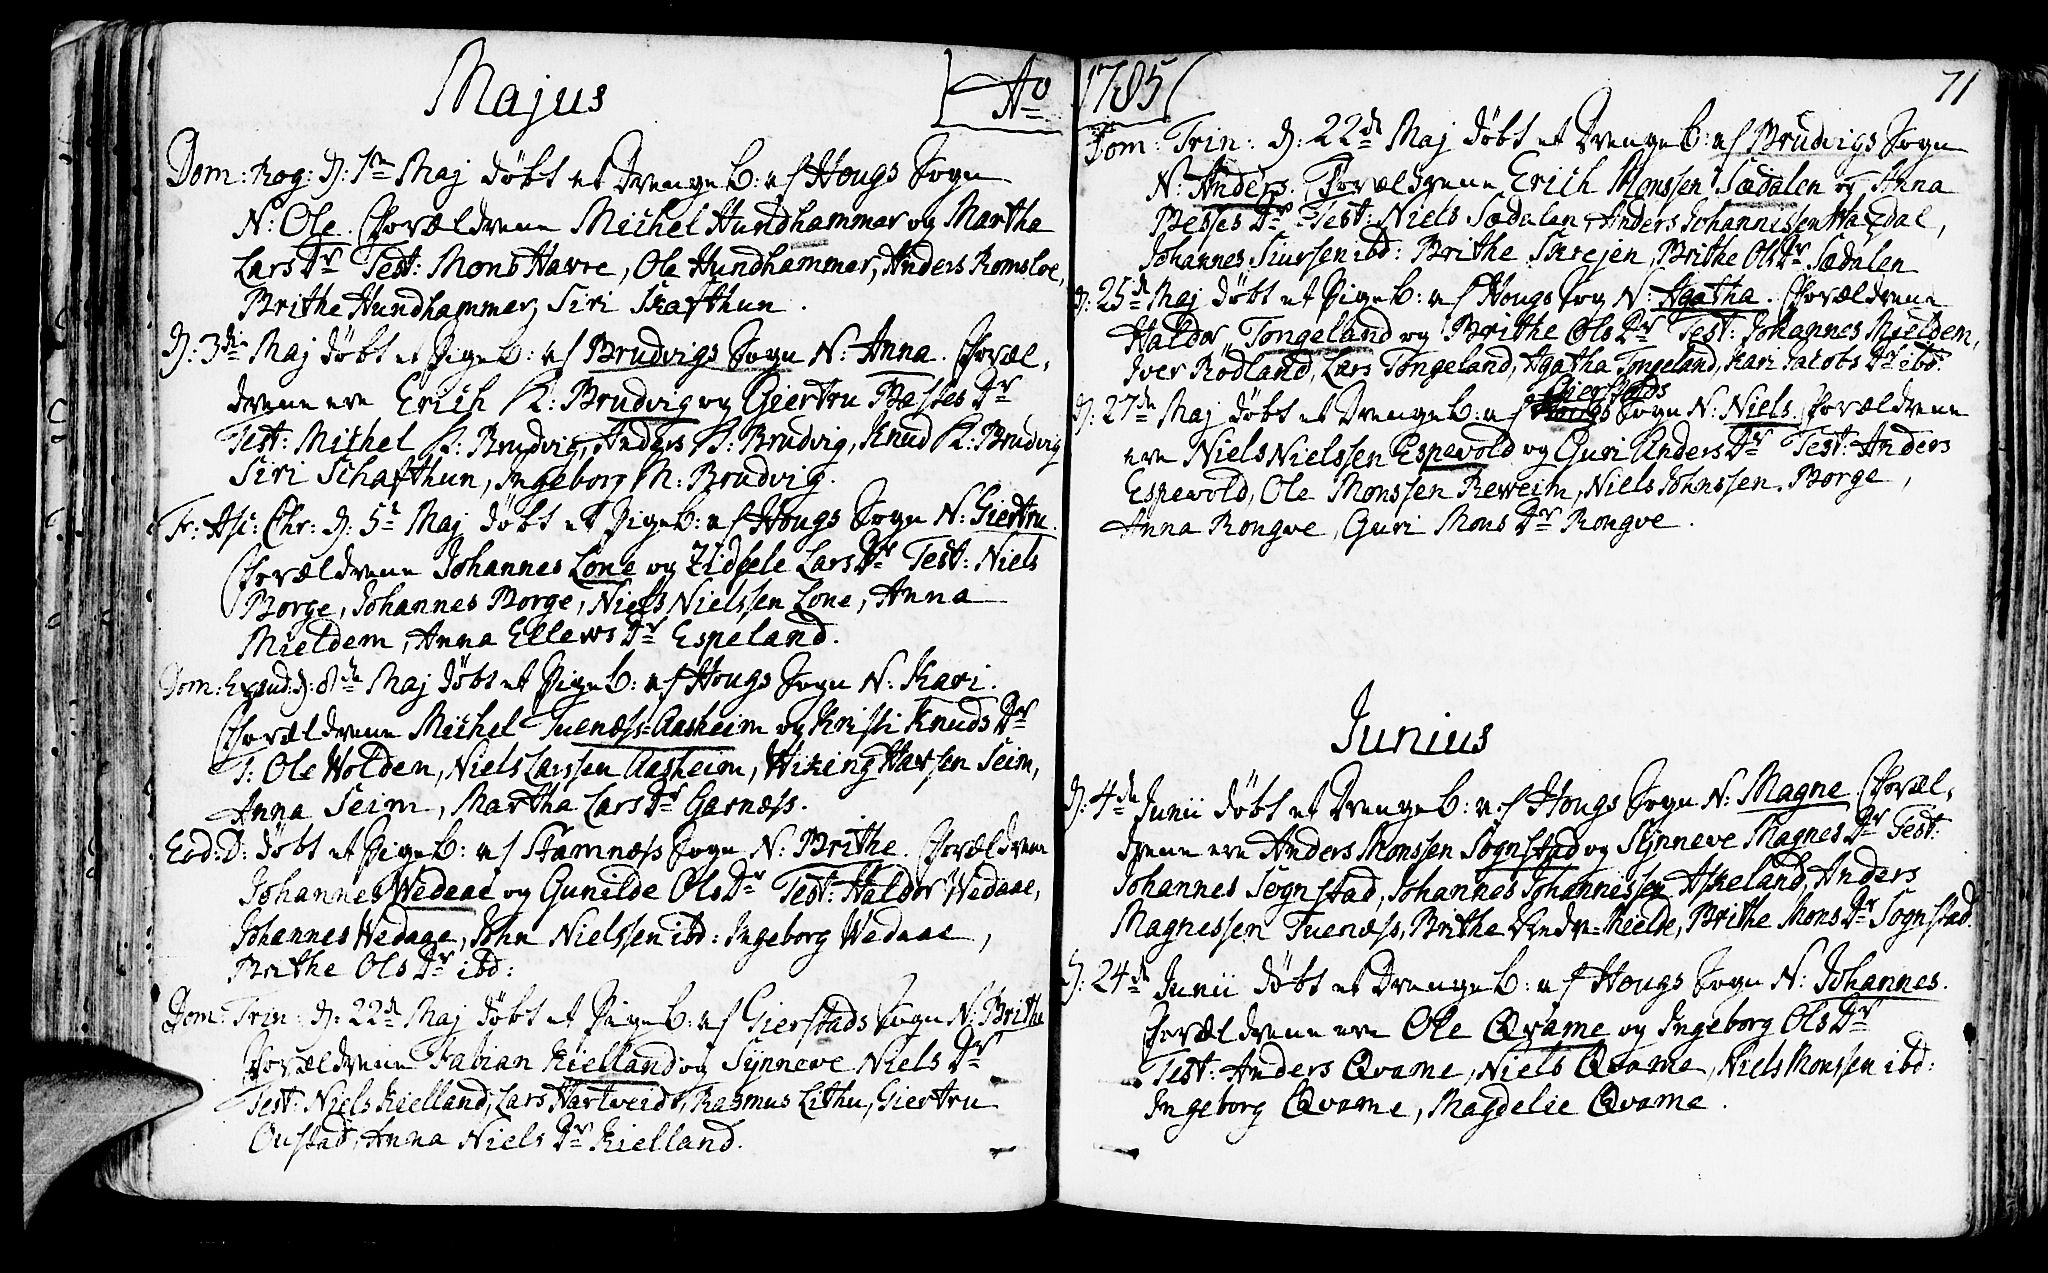 Majus
Ao
Dom: Rog: d: 1te Maj døbt et Drenge b: af Hougs Sogn
N: Ole. Forældrene Michel Hundhammer og Martha
Lars Dr Test: Mons Havre, Ole Hundhammer, Anders Romsloe,
Brithe Hundhammer, Siri Skafthun.
d: 3die Maj døbt et Pige b: af Brudvigs Sogn N: Anna. Foræl,
drene ere Erich K: Brudvig og Giertru Bæsses Dr
Test: Michel K: Brudvig, Anders K: Brudvig, Knud K: Brudvig
Siri Schafthun, Ingeborg M: Brudvig.
Fr: Asc: Chr: d: 5te Maj døbt et Pige b: af Hougs Sogn N: Giertru.
Forældrene Johannes Lone og Zidsele Lars Dr Test: Niels
Borge, Johannes Borge, Niels Nielssen Lone, Anna
Mieldem, Anna Ellews Dr Espeland.
Dom: Exaud: d: 8de Maj døbt et Pige b: af Hougs Sogn N: Kari.
Forældrene Michel Tuenæss=Aasheim og Kristi Knuds Dr
T: Ole Wolden, Niels Larssen Aasheim, Wiking Haxsen Seim,
Anna Seim, Martha Lars Dr Garnæss.
Eod: D: døbt et Pige b: af Stamnæss Sogn N: Brithe. Forældrene
Johannes Wedaae og Gunilde Ols Dr Test: Haldor Wedaae,
Johannes Wedaae, John Nielssen ibd: Ingeborg Wedaae,
Brithe Ols Dr ibd:
Dom: Trin: d: 22de Maj døbt et Pige b: af Gierstads Sogn N: Brithe
Forældrene Fabian Kielland og Synneve Niels Dr
Test: Niels Kielland, Lars Hartveidt, Rasmus Lithu, Giertru
Oustad, Anna Niels Dr Kielland.
1785
71
Dom: Trin: d: 22de Maj døbt et Drenge b: af Brudvigs Sogn
N: Anders. Forældrene Erich Monssen Sædalen og Anna
Besses Dr Test: Niels Sædalen, Anders Johannessen Waxdal,
Johannes Siursen ibd: Brithe Skrejen, Brithe Ols Dr Sædalen
d: 25de Maj døbt et Pige b: af Hougs Sog N: Agatha. Forældrene
Haldor Tongeland og Brithe Ols Dr Test: Johannes Mieldem,
Iver Rødland, Lars Tongeland, Agatha Tongeland, Kari Jacobs Dr ibd:
Gierstads
d: 27de Maj døbt et Drenge b: af Hougs Sogn N: Niels. Forældrene
ere Niels Nielssen Espevold og Guri Anders Dr Test: Anders
Espevold, Ole Monssen Reweim, Niels Johnssen Borge,
Anna Rongve, Guri Mons Dr Rongve.
Junius
d: 4de Junii døbt et Drenge b: af Hougs Sogn N: Magne Foræl,
drene ere Anders Monssen Sognstad og Synneve Magnes Dr Test:
Johannes Sognstad, Johannes Johannessen Askeland, Anders
Magnessen Tuenæss, Brithe Nedre=Mielde, Brithe Mons Dr Sognstad.
d: 24de Junii døbt et Drenge b: af Hougs Sogn N: Johannes.
Forældrene ere Ole Qvame og Ingeborg Ols Dr
Test: Anders Qvame, Niels Qvame, Niels Monssen ibd:
Ingeborg Qvame, Magdelie Qvame.